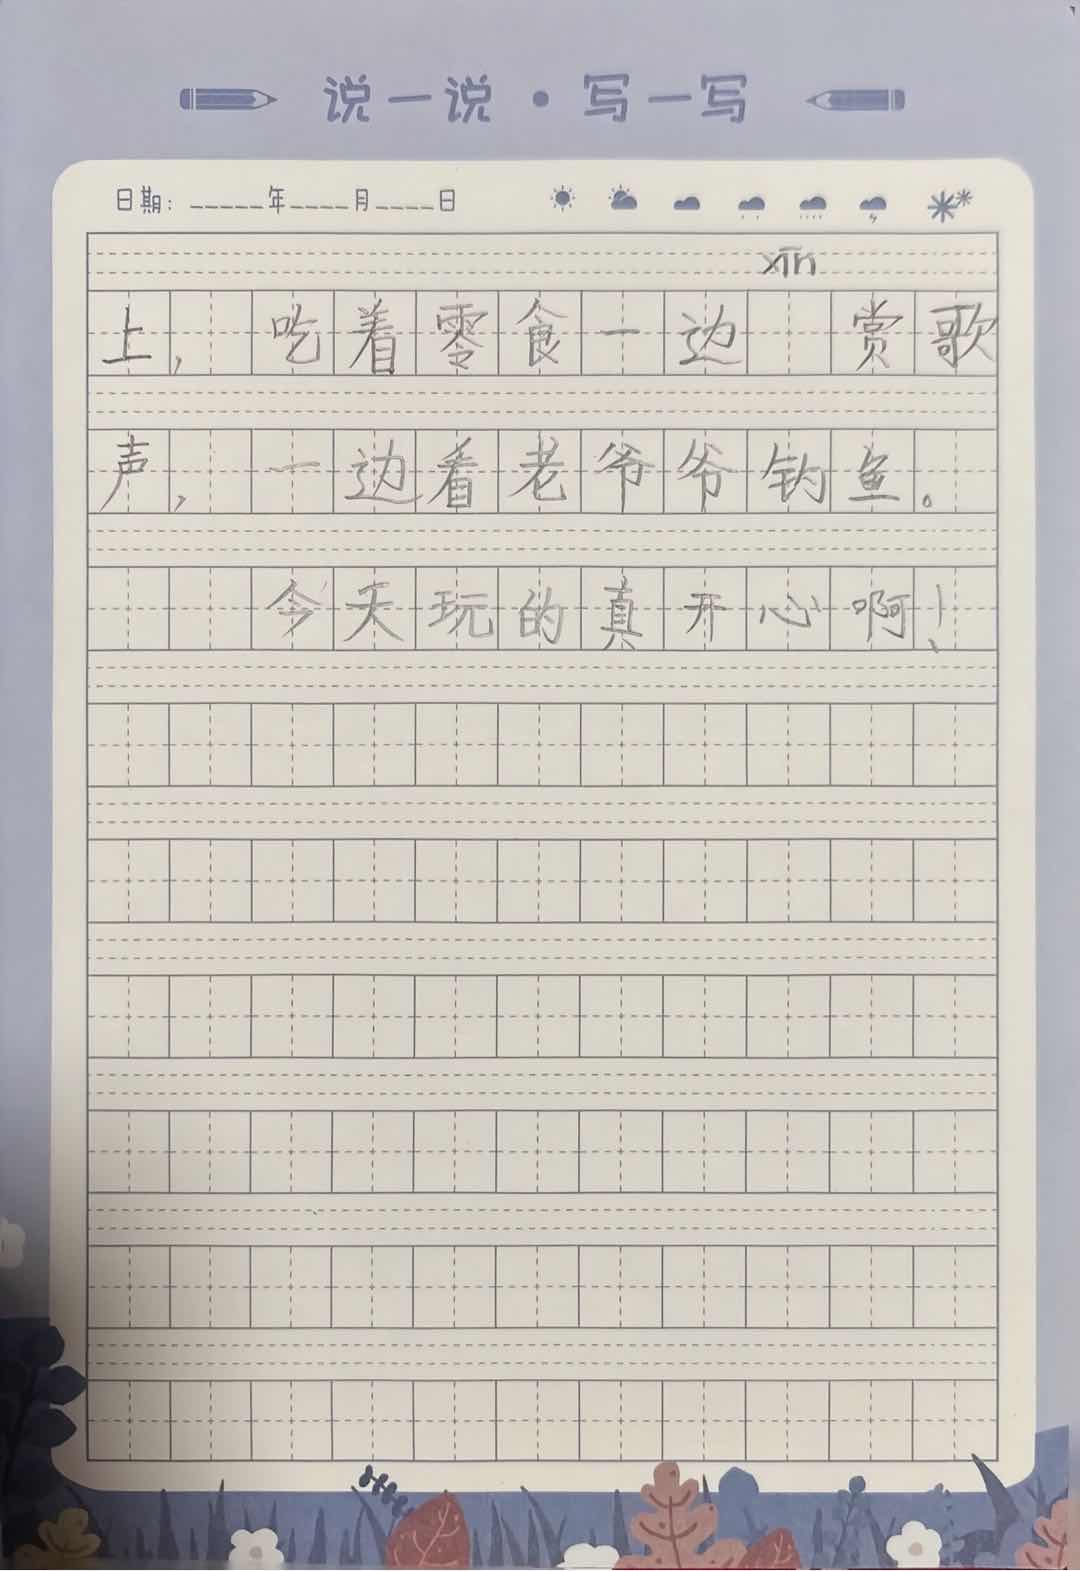 说一说·写一写
日期: _____年____月____日
xīn
上,吃着零食一边 赏歌
声,一边看老爷爷钓鱼。
今天玩的真开心啊!